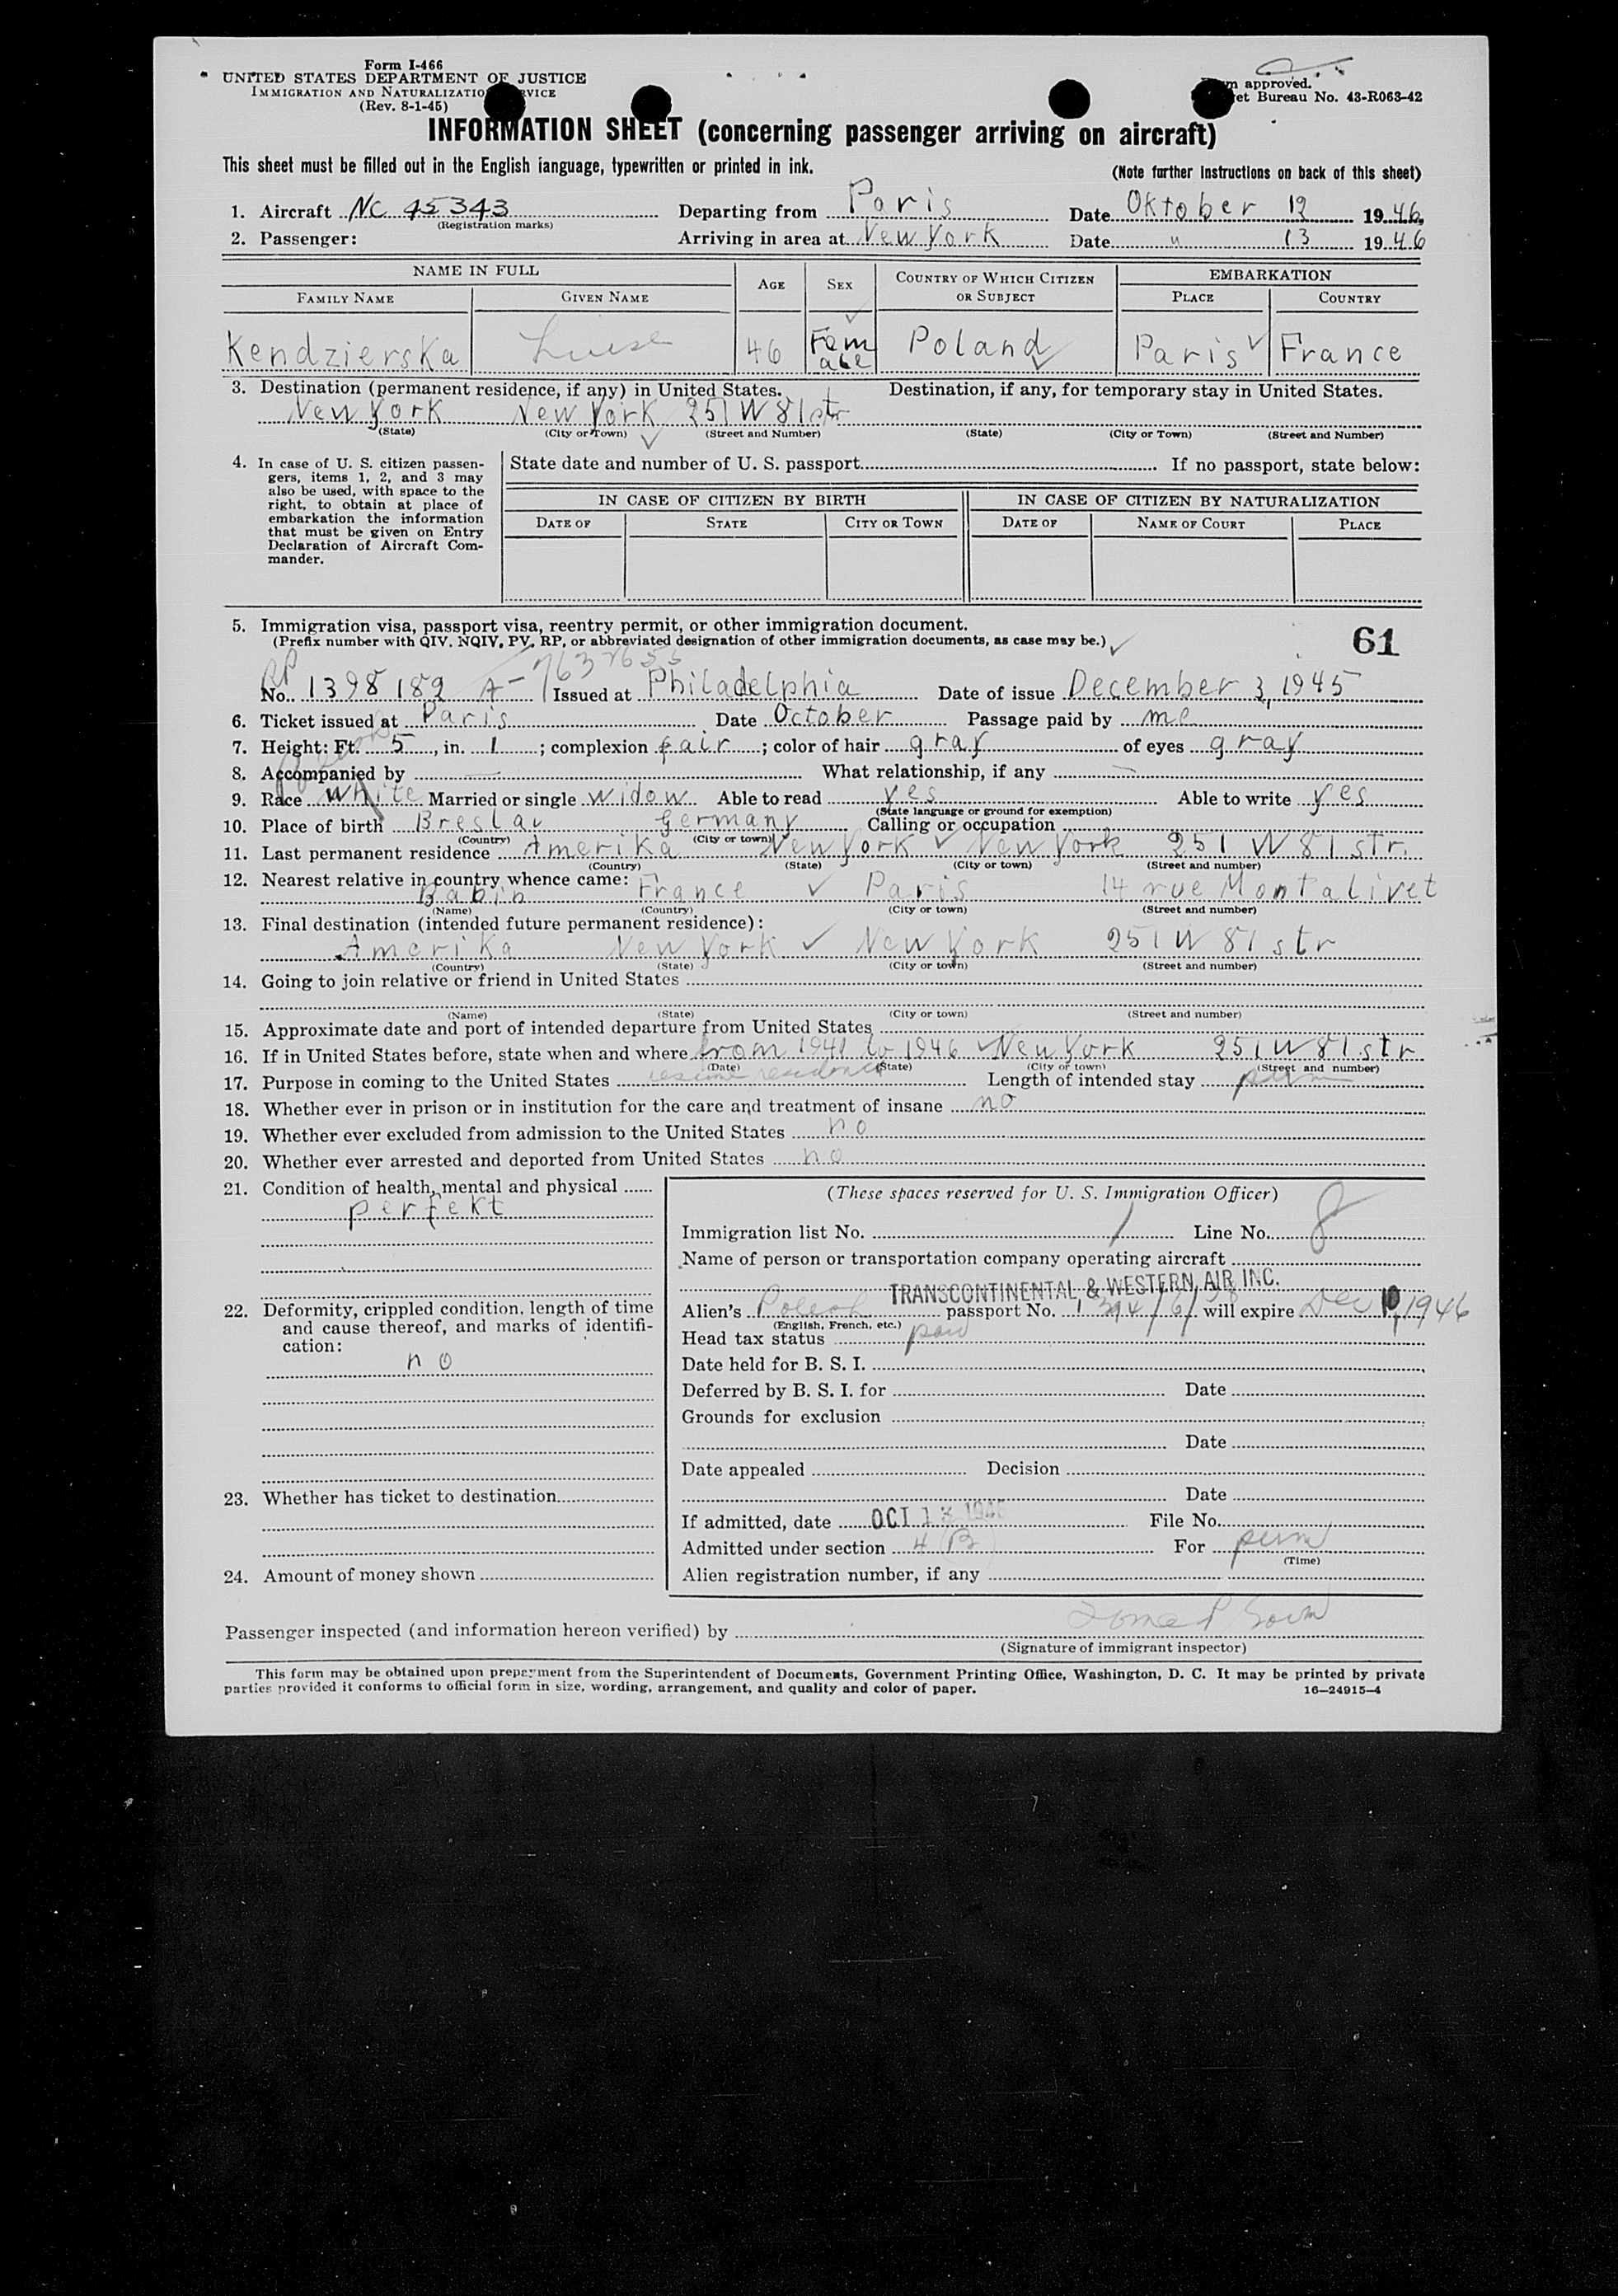 Form I-466
UNITED STATES DEPARTMENT OF JUSTICE
IMMIGRATION AND NATURALIZATION SERVICE
(Rev. 8-1-45)
Form approved.
Budget Bureau No. 43-R063-42
INFORMATION SHEET (concerning passenger arriving on aircraft)
This sheet must be filled out in the English language, typewritten or printed in ink.
(Note further instructions on back of this sheet)
1. Aircraft NC 45343 Departing from Paris Date Oktober 12 1946
(Registration marks)
2. Passenger: Arriving in area at New York Date " 13 1946
NAME IN FULL AGE SEX COUNTRY OF WHICH CITIZEN OR SUBJECT EMBARKATION
FAMILY NAME GIVEN NAME PLACE COUNTRY
Kendzierska Luise 46 Female Poland Paris France
3. Destination (permanent residence, if any) in United States. Destination, if any, for temporary stay in United States.
New York New York 251 W 81 str
(State) (City or Town) (Street and Number) (State) (City or Town) (Street and Number)
4. In case of U. S. citizen passengers, items 1, 2, and 3 may also be used, with space to the right, to obtain at place of embarkation the information that must be given on Entry Declaration of Aircraft Commander.
State date and number of U. S. passport If no passport, state below:
IN CASE OF CITIZEN BY BIRTH IN CASE OF CITIZEN BY NATURALIZATION
DATE OF STATE CITY OR TOWN DATE OF NAME OF COURT PLACE
5. Immigration visa, passport visa, reentry permit, or other immigration document.
(Prefix number with QIV, NQIV, PV, RP, or abbreviated designation of other immigration documents, as case may be.)
61
RP
No. 1398189 A- Issued at Philadelphia Date of issue December 3, 1945
6. Ticket issued at Paris Date October Passage paid by me
7. Height: Ft. 5, in. 1; complexion fair; color of hair gray of eyes gray
8. Accompanied by — What relationship, if any —
9. Race white Married or single widow Able to read yes Able to write yes
(State language or ground for exemption)
10. Place of birth Breslau Germany Calling or occupation
(Country) (City or town)
11. Last permanent residence Amerika New York New York 251 W 81 str.
(Country) (State) (City or town) (Street and number)
12. Nearest relative in country whence came:
Babin France Paris 14 rue Montalivet
(Name) (Country) (City or town) (Street and number)
13. Final destination (intended future permanent residence):
Amerika New York New York 251 W 81 str
(Country) (State) (City or town) (Street and number)
14. Going to join relative or friend in United States
(Name) (State) (City or town) (Street and number)
15. Approximate date and port of intended departure from United States
16. If in United States before, state when and where from 1941 to 1946 New York 251 W 81 str
(Date) (State) (City or town) (Street and number)
17. Purpose in coming to the United States resume residence Length of intended stay perm
18. Whether ever in prison or in institution for the care and treatment of insane no
19. Whether ever excluded from admission to the United States no
20. Whether ever arrested and deported from United States no
21. Condition of health, mental and physical
perfekt
22. Deformity, crippled condition, length of time and cause thereof, and marks of identification:
no
23. Whether has ticket to destination
24. Amount of money shown
(These spaces reserved for U. S. Immigration Officer)
Immigration list No. 1 Line No. 8
Name of person or transportation company operating aircraft
TRANSCONTINENTAL & WESTERN AIR INC.
Alien's Polish passport No. will expire Dec 10, 1946
(English, French, etc.)
Head tax status paid
Date held for B. S. I.
Deferred by B. S. I. for Date
Grounds for exclusion
Date
Date appealed Decision
Date
If admitted, date OCT 13 1946 File No.
Admitted under section 4 B For perm
(Time)
Alien registration number, if any
Passenger inspected (and information hereon verified) by
(Signature of immigrant inspector)
This form may be obtained upon prepayment from the Superintendent of Documents, Government Printing Office, Washington, D. C. It may be printed by private
parties provided it conforms to official form in size, wording, arrangement, and quality and color of paper.
16—24915-4